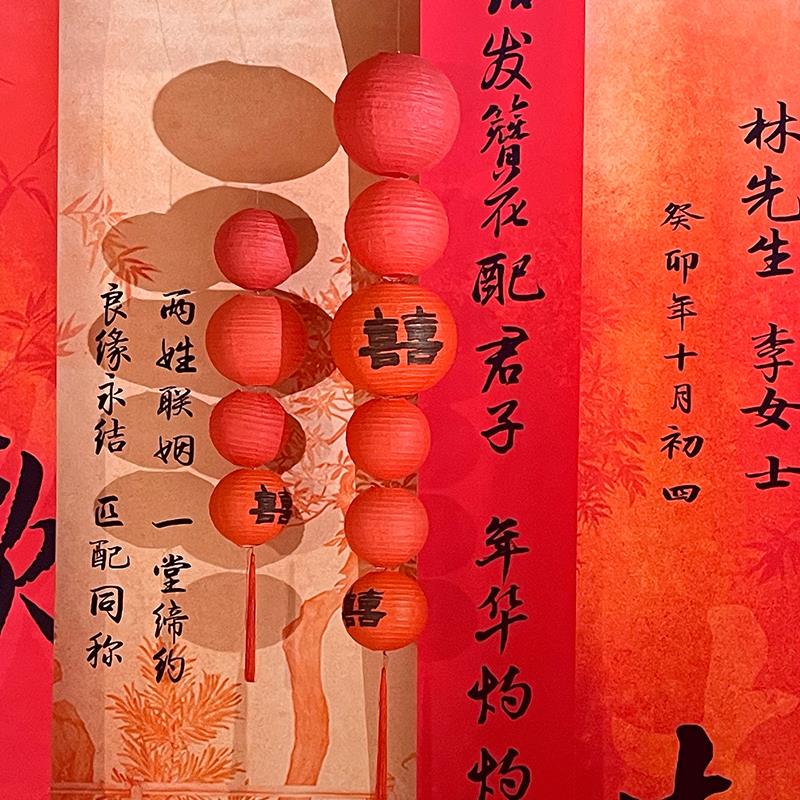 林先生 李女士
癸卯年十月初四
发簪花配君子 年华灼灼
囍
囍
囍
两姓联姻 一堂缔约
良缘永结 匹配同称